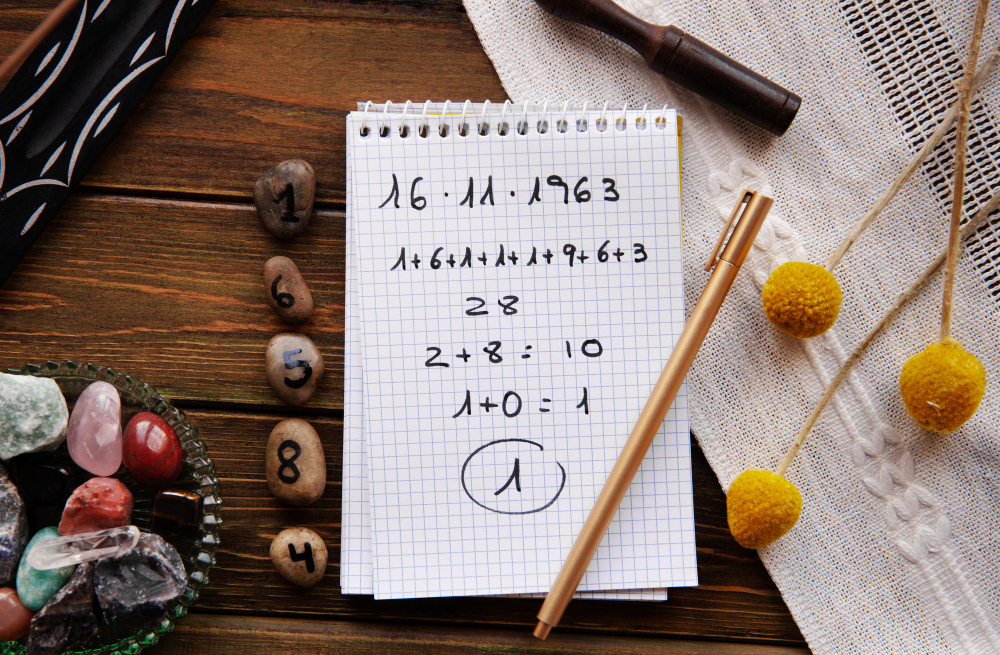 1
6
5
8
4
16.11.1963
1+6+1+1+1+9+6+3
28
2+8= 10
1+0 = 1
1